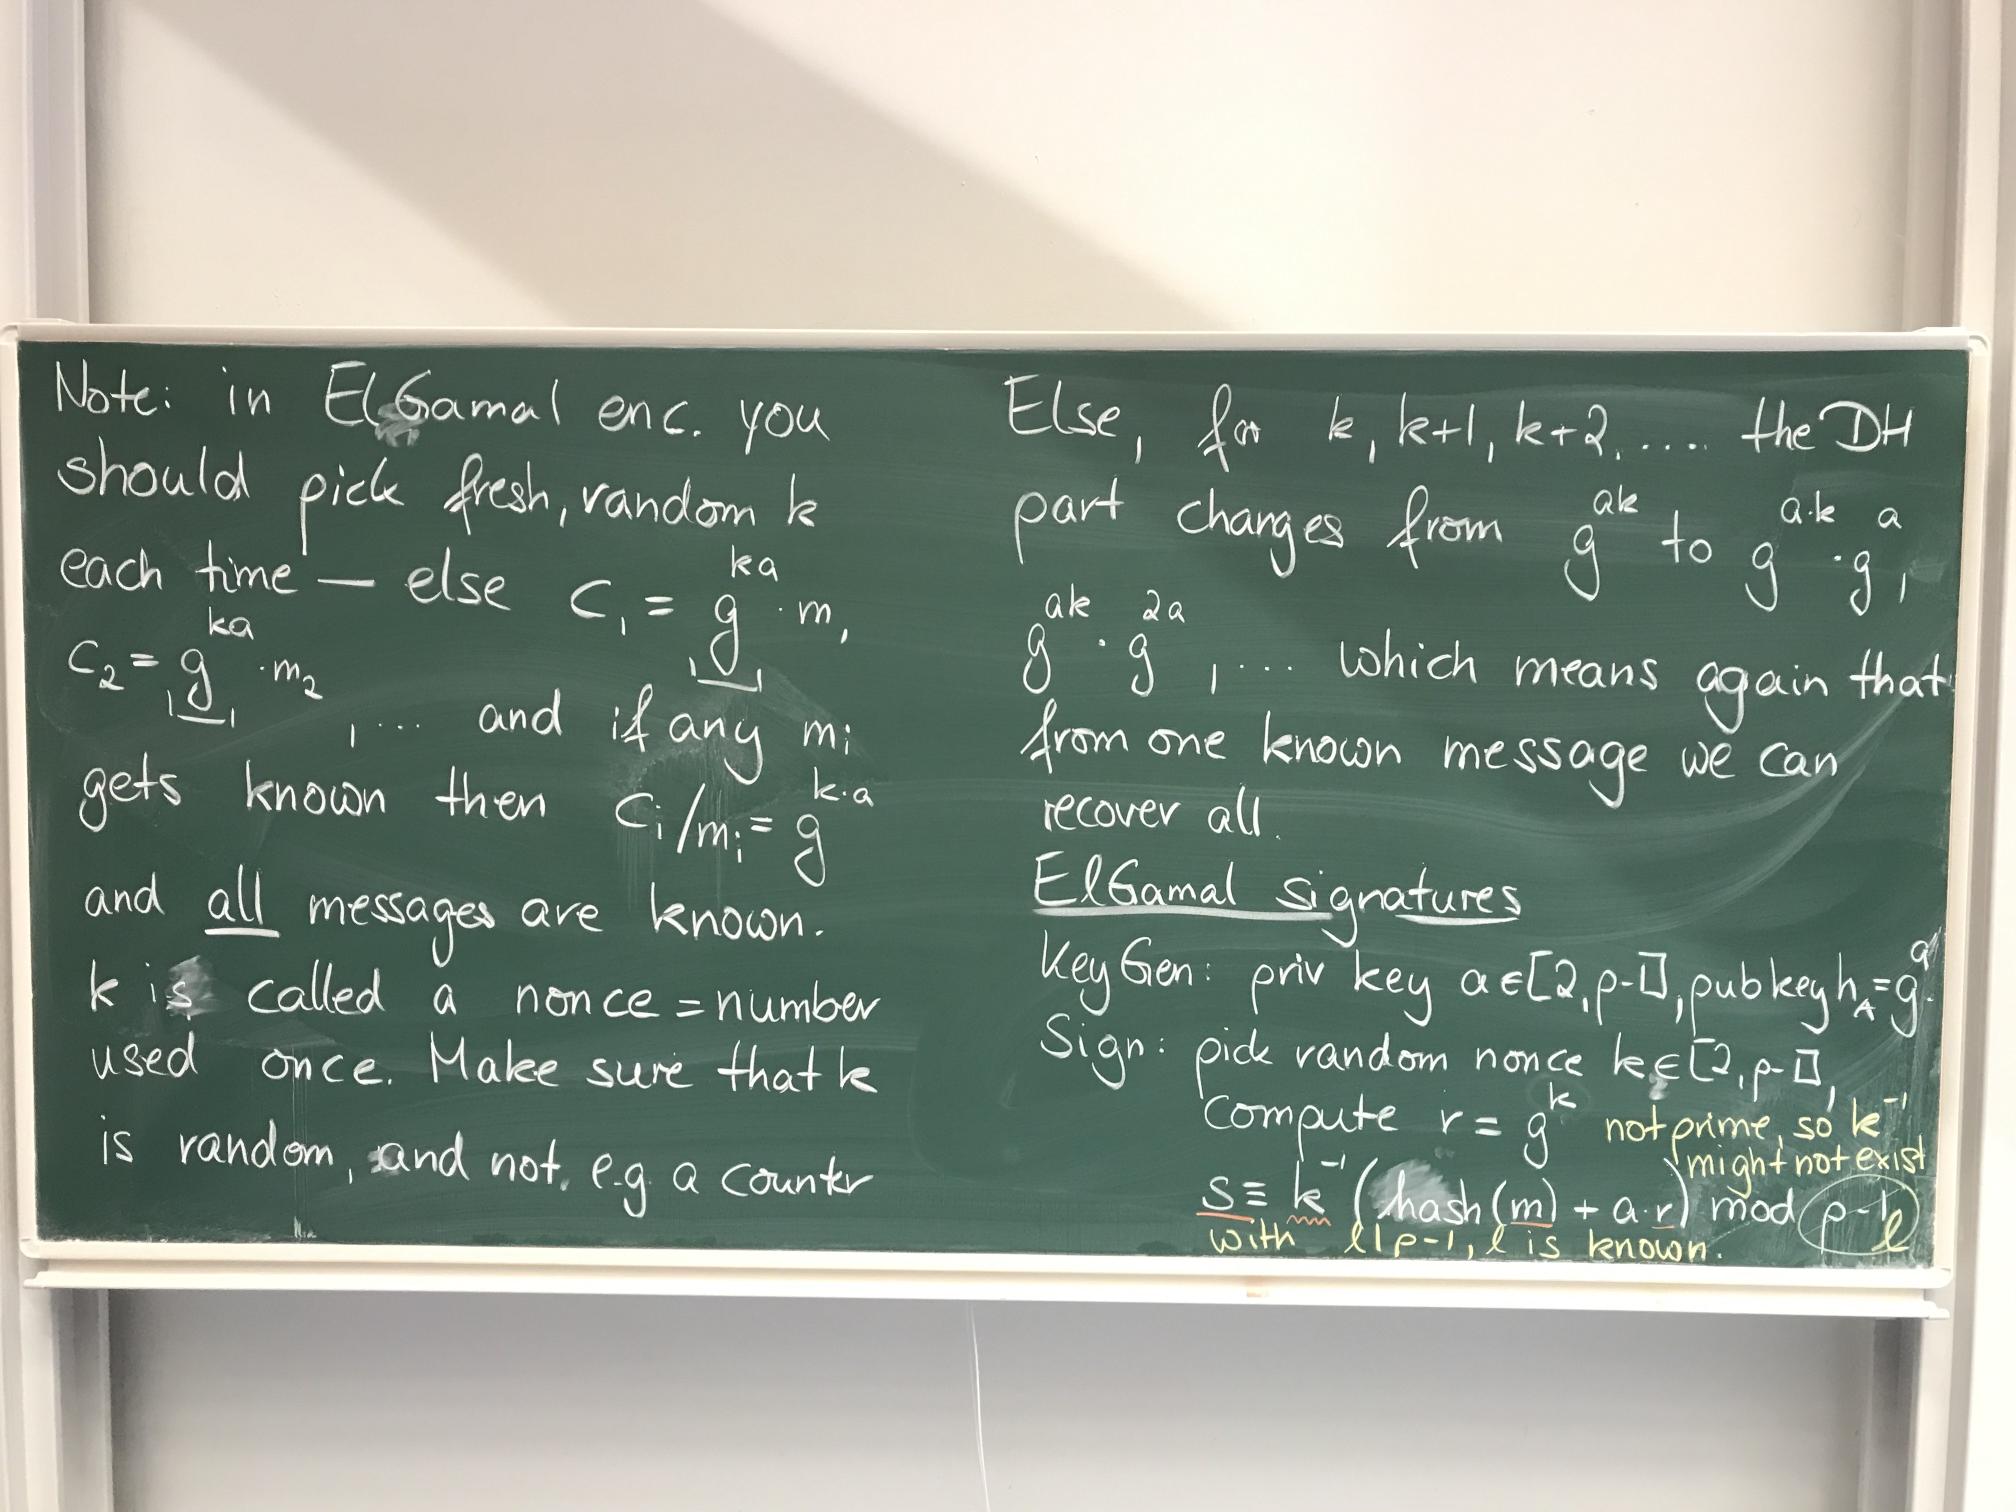 Note: in ElGamal enc. you
should pick fresh, random k
each time — else c₁ = g^ka · m₁
c₂ = g^ka · m₂
, ... and if any mᵢ
gets known then cᵢ/mᵢ = g^k·a
and all messages are known.
k is called a nonce = number
used once. Make sure that k
is random, and not, e.g. a counter
Else, for k, k+1, k+2, .... the DH
part changes from g^ak to g^a·k · g^a,
g^ak · g^2a, ... which means again that
from one known message we can
recover all.
ElGamal signatures
KeyGen: priv key a∈[2,p-1], pub key h_A = g^a.
Sign: pick random nonce k∈[2,p-1],
Compute r = g^k not prime, so k⁻¹
might not exist
s ≡ k⁻¹ (hash(m) + a·r) mod p-1 ℓ
with ℓ|p-1, ℓ is known.